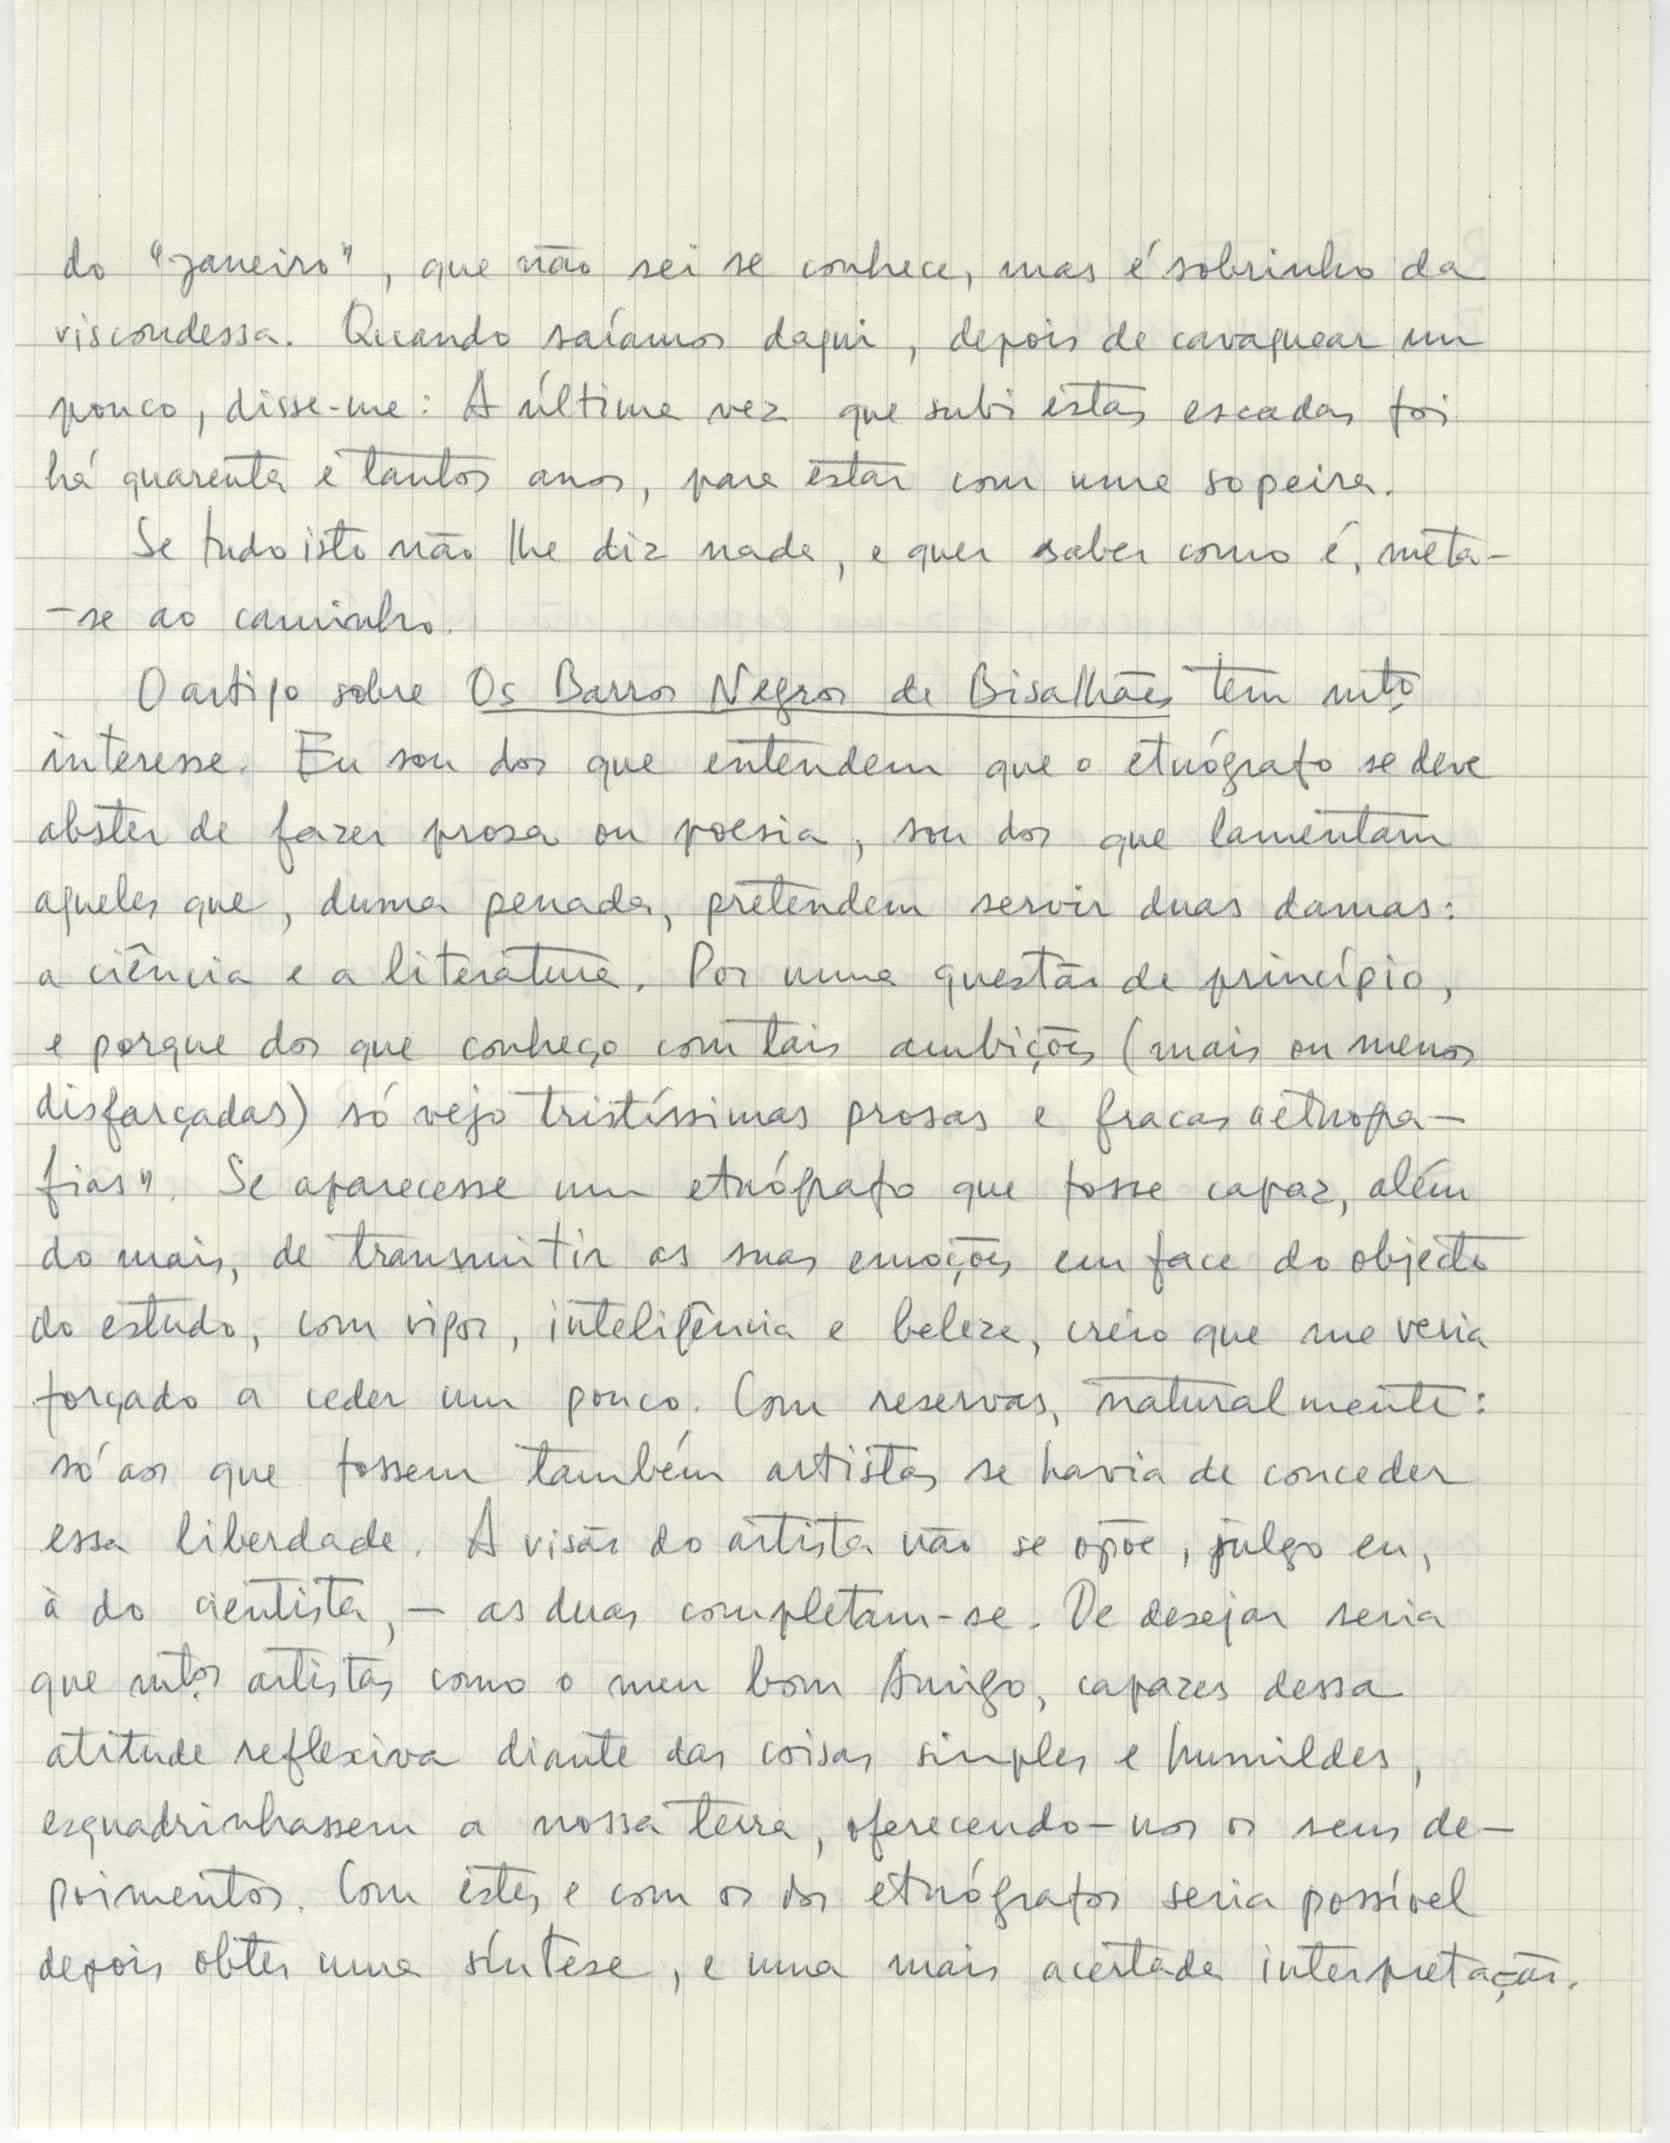 do "Janeiro", que não sei se conhece, mas é sobrinho da
viscondessa. Quando saíamos daqui, depois de cavaquear um
pouco, disse-me: A última vez que subi estas escadas foi
há quarenta e tantos anos, para estar com uma sopeira.
Se tudo isto não lhe diz nada, e quer saber como é, meta-
-se ao caminho.
O artigo sobre Os Barros Negros de Bisalhães tem mto
interesse. Eu sou dos que entendem que o etnógrafo se deve
abster de fazer prosa ou poesia, sou dos que lamentam
aqueles que, duma penada, pretendem servir duas damas:
a ciência e a literatura. Por uma questão de princípio,
e porque dos que conheço com tais ambições (mais ou menos
disfarçadas) só vejo tristíssimas prosas e fracas "etnogra-
fias". Se aparecesse um etnógrafo que fosse capaz, além
do mais, de transmitir as suas emoções em face do objecto
do estudo, com vigor, inteligência e beleza, creio que me veria
forçado a ceder um pouco. Com reservas, naturalmente:
só aos que fossem também artistas se havia de conceder
essa liberdade. A visão do artista não se opõe, julgo eu,
à do cientista, — as duas completam-se. De desejar seria
que mtos artistas como o meu bom Amigo, capazes dessa
atitude reflexiva diante das coisas simples e humildes,
esquadrinhassem a nossa terra, oferecendo-nos os seus de-
poimentos. Com estes e com os dos etnógrafos seria possível
depois obter uma síntese, e uma mais acertada interpretação.